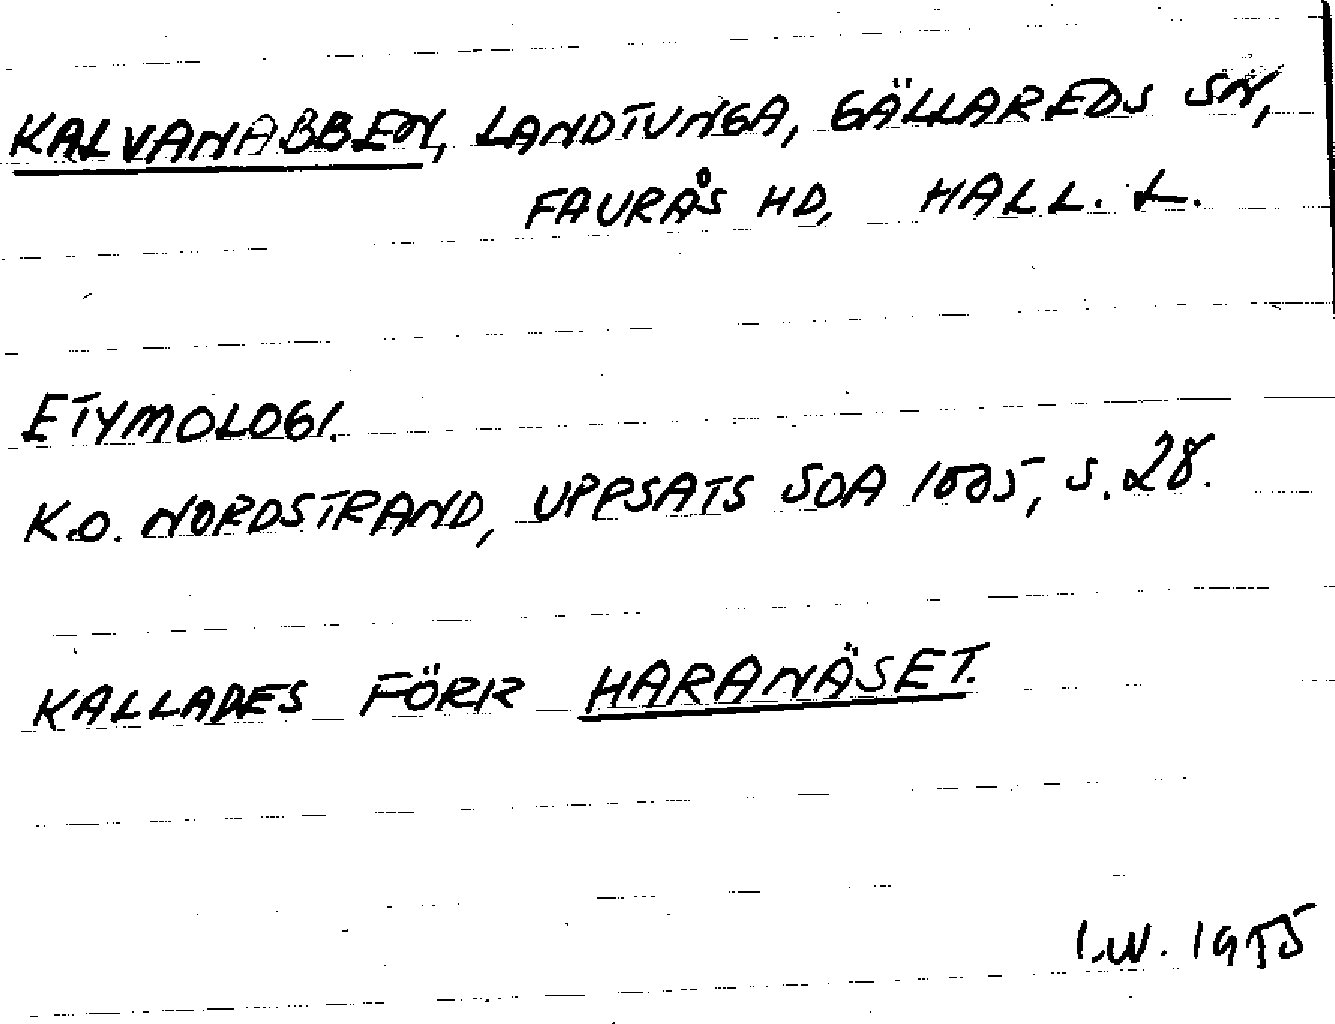 KALVANABBEN, LANDTUNGA, GÄLLAREDS SN,
FAURÅS HD, HALL. L.
ETYMOLOGI.
K.O. NORDSTRAND, UPPSATS SOA s. 28.
KALLADES FÖRR HARANÄSET.
I.W. 1955